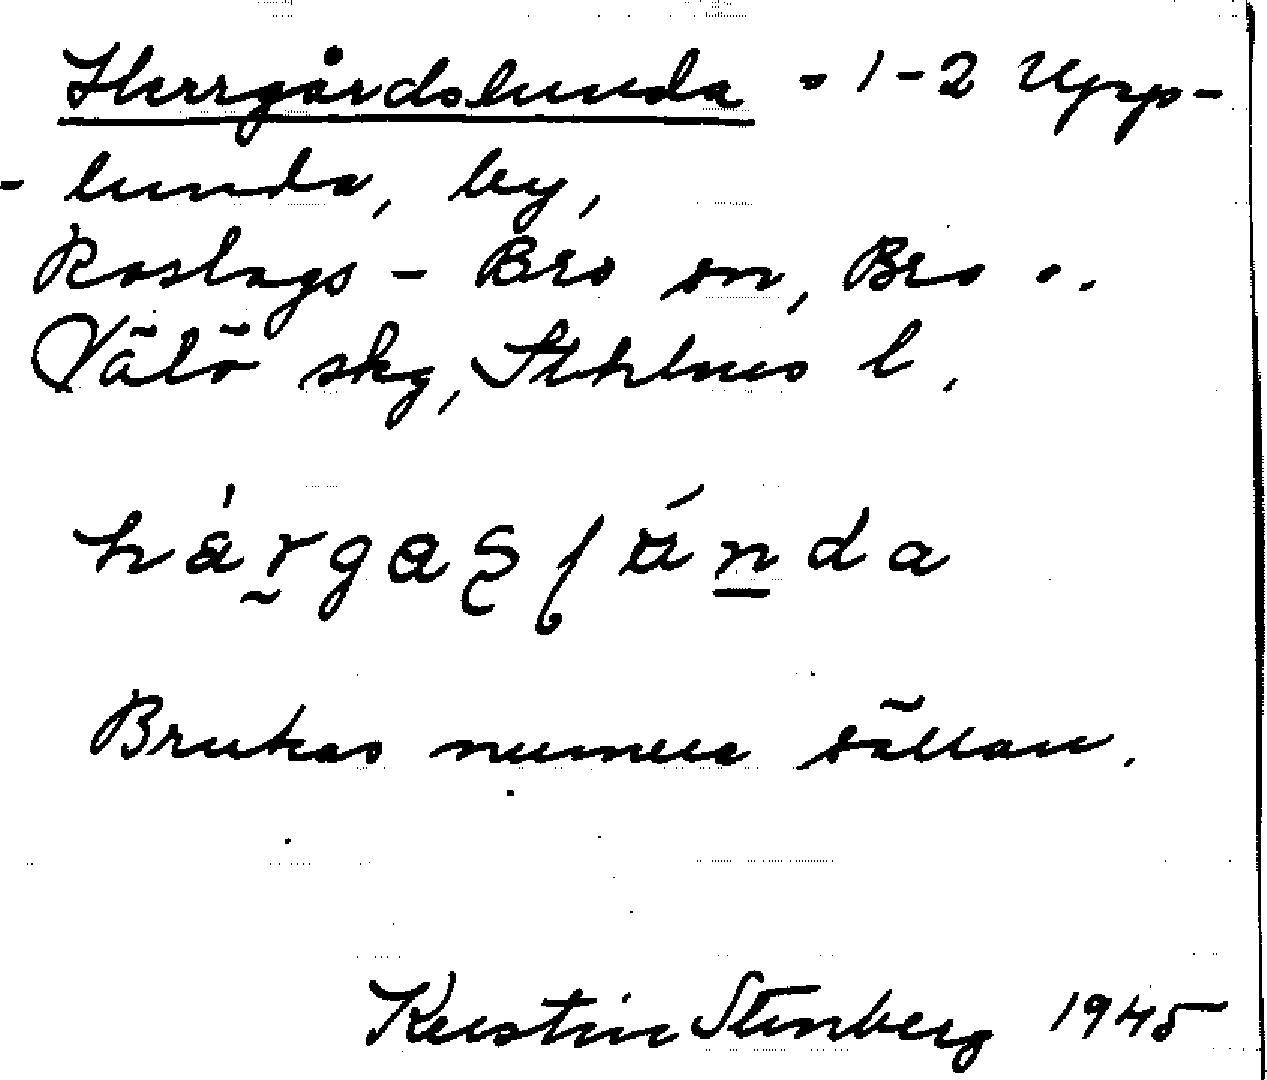 Herrgårdslunda = 1-2 Upp-
- lunda, by,
Roslags - Bro sn, Bro o.
Vätö skg, Sthlms l.
Brukas numera sällan.
Kerstin Stenberg 1945